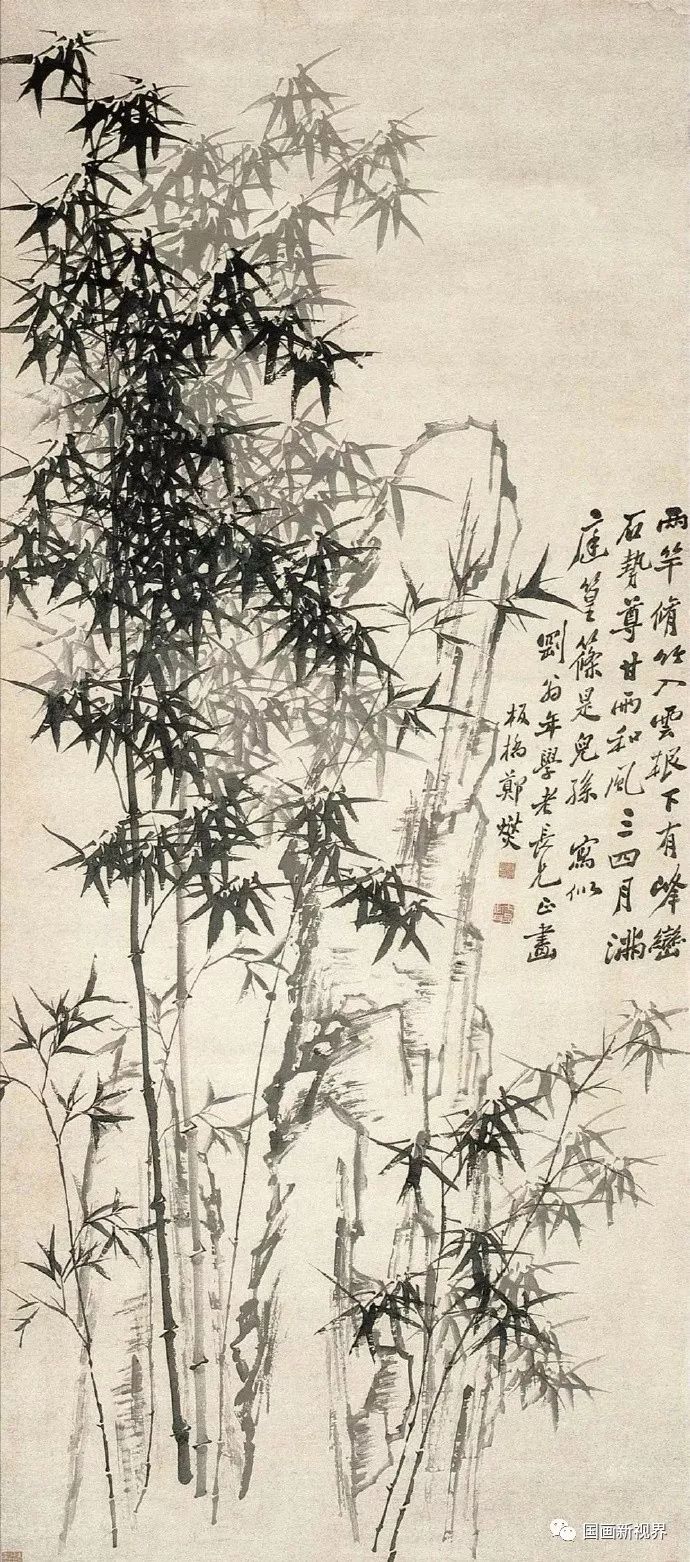 兩竿脩竹入雲根下有峰巒
石勢尊甘雨和風三四月滿
庭篁篠是兒孫 寫似
劉翁年學老長兄正畫
板橋鄭燮
国画新视界